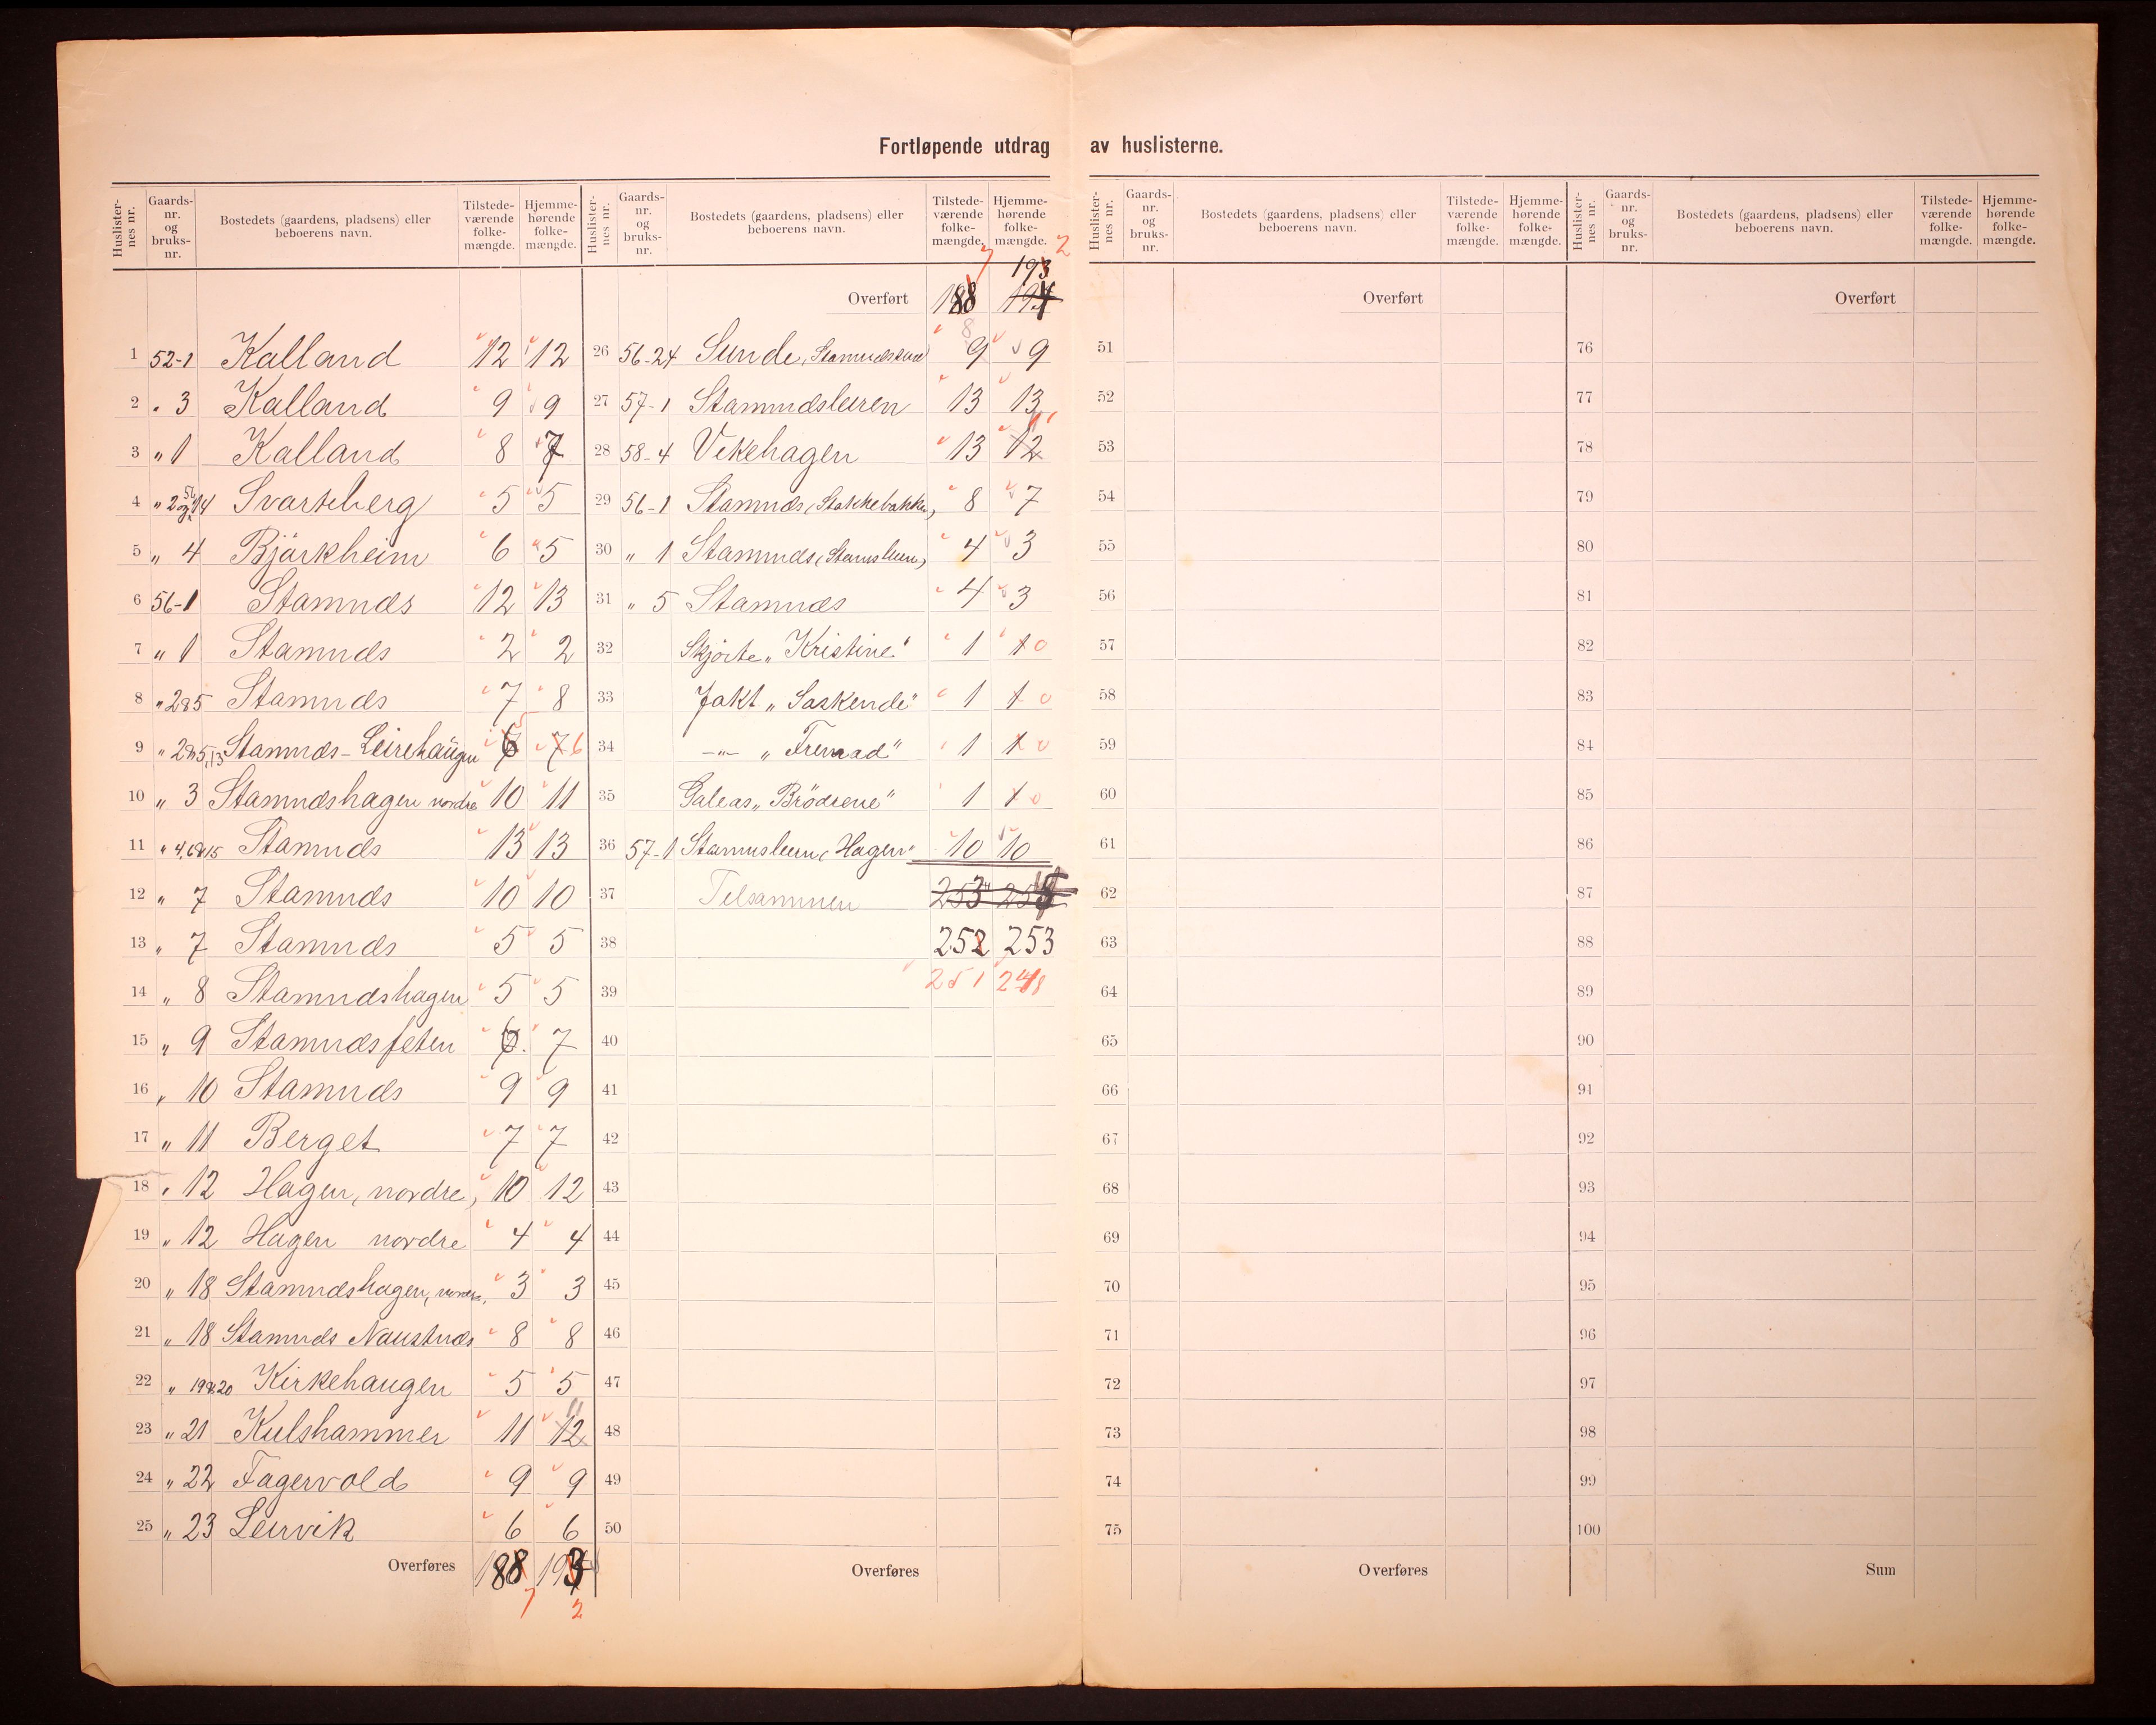 Fortløpende utdrag av huslisterne.
Huslister-nes nr. Gaards-nr. og bruks-nr. Bostedets (gaardens, pladsens) eller beboerens navn. Tilstede-værende folke-mængde. Hjemme-hørende folke-mængde.
1 52-1 Kalland 12 12
2 " 3 Kalland 9 9
3 " 1 Kalland 8 7
4 Svarteberg 5 5
5 " 4 Bjärkheim 6 5
6 56-1 Stamnds 12 13
7 " 1 Stamnds 2 2
8 " 2&5 Stamnds 7 8
9 Stamnds-Leirehaugen 6 5 7 6
10 " 3 Stamndshagen nordre 10 11
11 " 4,6&15 Stamnds 13 13
12 " 7 Stamnds 10 10
13 " 7 Stamnds 5 5
14 " 8 Stamndshagen 5 5
15 " 9 Stamndsfeten 6 7
16 " 10 Stamnds 9 9
17 " 11 Berget 7 7
18 " 12 Hagen, nordre, 10 12
19 " 12 Hagen nordre 4 4
20 " 18 Stamndshagen, nordre, 3 3
21 " 18 Stamnds Naustnds 8 8
22 " 19&20 Kirkehaugen 5 5
23 " 21 Kulshammer 11 12 11
24 " 22 Fagervold 9 9
25 " 23 Leirvik 6 6
Overføres 188 193
7 2
Huslister-nes nr. Gaards-nr. og bruks-nr. Bostedets (gaardens, pladsens) eller beboerens navn. Tilstede-værende folke-mængde. Hjemme-hørende folke-mængde.
7 193 2
Overført 188 194
26 56-24 Sunde, 8 9 9
27 57-1 Stamndsleiren 13 13
28 58-4 Vikehagen 13 12 11
29 56-1 Stamnds (Stakkebakken) 8 7
30 " 1 Stamnds 4 3
31 " 5 Stamnds 4 3
32 Skjöite "Kristine" 1 1 0
33 Jakt "Söskende" 1 1 0
34 -"- "Fremad" 1 1 0
35 Galeas "Brödrene" 1 1 0
36 57-1 Hagen 10 10
37 Tilsammen 253
38 252 253
39 251 248
40
41
42
43
44
45
46
47
48
49
50
Overføres
Huslister-nes nr. Gaards-nr. og bruks-nr. Bostedets (gaardens, pladsens) eller beboerens navn. Tilstede-værende folke-mængde. Hjemme-hørende folke-mængde.
Overført
51
52
53
54
55
56
57
58
59
60
61
62
63
64
65
66
67
68
69
70
71
72
73
74
75
Overføres
Huslister-nes nr. Gaards-nr. og bruks-nr. Bostedets (gaardens, pladsens) eller beboerens navn. Tilstede-værende folke-mængde. Hjemme-hørende folke-mængde.
Overført
76
77
78
79
80
81
82
83
84
85
86
87
88
89
90
91
92
93
94
95
96
97
98
99
100
Sum